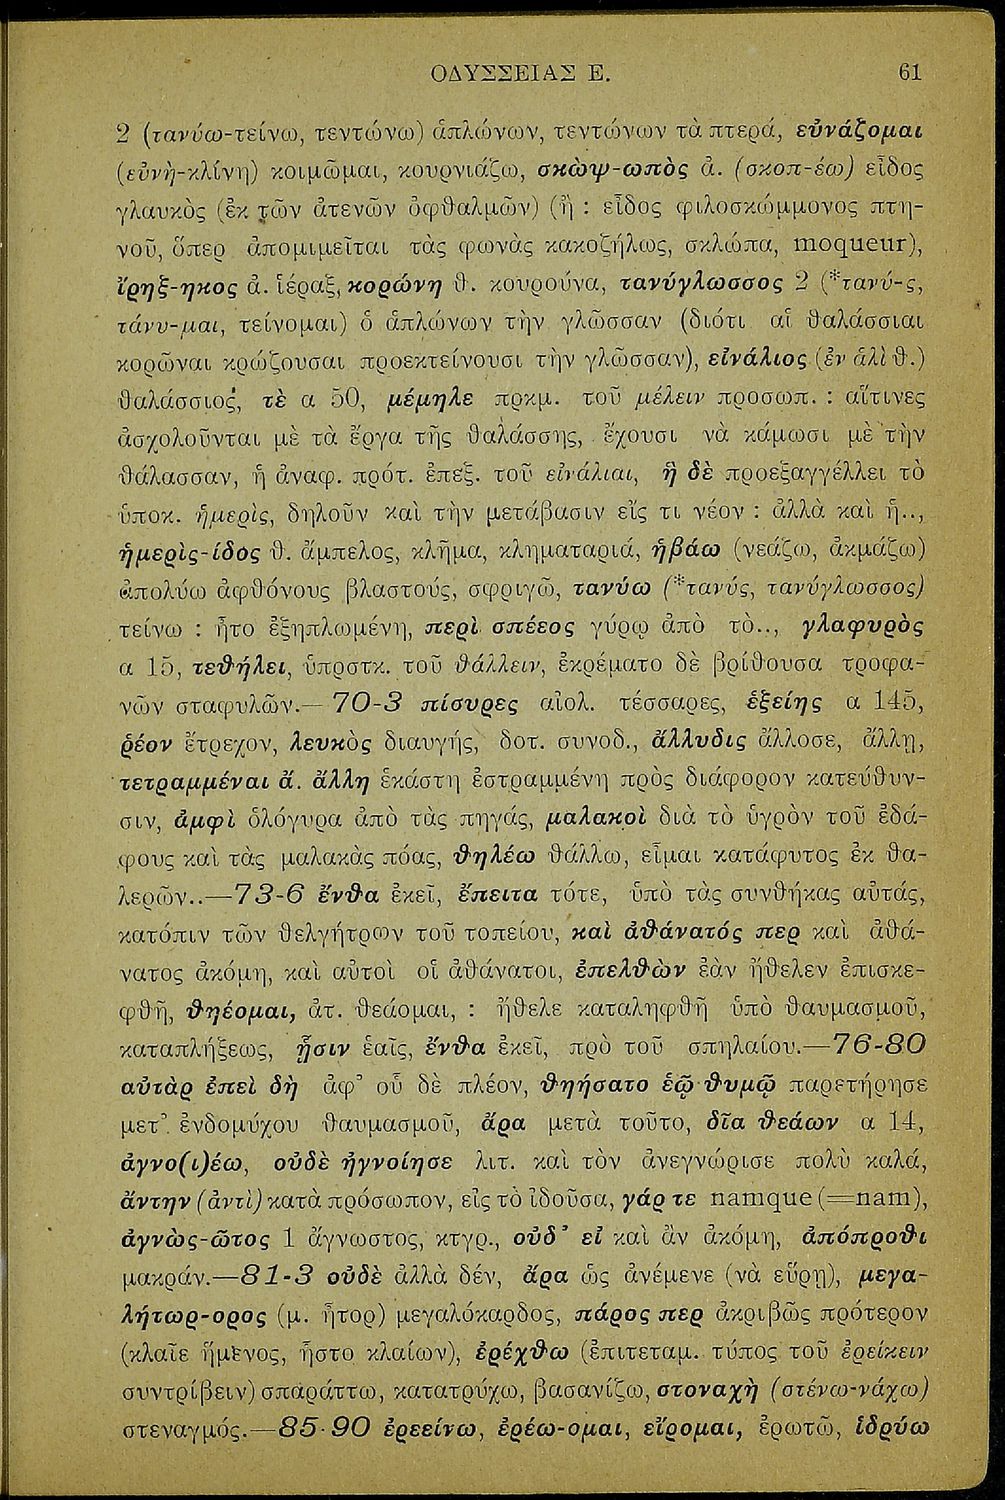 ΟΔΥΣΣΕΙΑΣ Ε. 61
2 (τανύω-τείνω, τεντώνω) ἁπλώνων, τεντώνων τὰ πτερά, εὐνάζομαι
(εὐνὴ-κλίνη) κοιμῶμαι, κουρνιάζω, σκὼψ-ωπὸς ἀ. (σκοπ-έω) εἶδος
γλαυκὸς (ἐκ τῶν ἀτενῶν ὀφθαλμῶν) (ἢ : εἶδος φιλοσκώμμονος πτη-
νοῦ, ὅπερ ἀπομιμεῖται τὰς φωνὰς κακοζήλως, σκλώπα, moqueur),
ἴρηξ-ηκος ἀ. ἱέραξ, κορώνη θ. κουρούνα, τανύγλωσσος 2 (*τανύ-ς,
τάνυ-μαι, τείνομαι) ὁ ἁπλώνων τὴν γλῶσσαν (διότι αἱ θαλάσσιαι
κορῶναι κρώζουσαι προεκτείνουσι τὴν γλῶσσαν), εἰνάλιος (ἐν ἁλὶ θ.)
θαλάσσιος, τὲ α 50, μέμηλε πρκμ. τοῦ μέλειν προσωπ. : αἵτινες
ἀσχολοῦνται μὲ τὰ ἔργα τῆς θαλάσσης, ἔχουσι νὰ κάμωσι μὲ τὴν
θάλασσαν, ἡ ἀναφ. πρότ. ἐπεξ. τοῦ εἰνάλιαι, ἡ δὲ προεξαγγέλλει τὸ
ὑποκ. ἡμερίς, δηλοῦν καὶ τὴν μετάβασιν εἴς τι νέον : ἀλλὰ καὶ ἡ..,
ἡμερὶς-ίδος θ. ἄμπελος, κλῆμα, κληματαριά, ἡβάω (νεάζω, ἀκμάζω)
ἀπολύω ἀφθόνους βλαστούς, σφριγῶ, τανύω (*τανύς, τανύγλωσσος)
τείνω : ἦτο ἐξηπλωμένη, περὶ σπέεος γύρῳ ἀπὸ τὸ.., γλαφυρὸς
α 15, τεθήλει, ὑπρστκ. τοῦ θάλλειν, ἐκρέματο δὲ βρίθουσα τροφα-
νῶν σταφυλῶν.— 70-3 πίσυρες αἰολ. τέσσαρες, ἑξείης α 145,
ῥέον ἔτρεχον, λευκὸς διαυγής, δοτ. συνοδ., ἄλλυδις ἄλλοσε, ἄλλῃ,
τετραμμέναι ἄ. ἄλλη ἑκάστη ἐστραμμένη πρὸς διάφορον κατεύθυν-
σιν, ἀμφὶ ὁλόγυρα ἀπὸ τὰς πηγάς, μαλακοὶ διὰ τὸ ὑγρὸν τοῦ ἐδά-
φους καὶ τὰς μαλακὰς πόας, θηλέω θάλλω, εἶμαι κατάφυτος ἐκ θα-
λερῶν..—73-6 ἔνθα ἐκεῖ, ἔπειτα τότε, ὑπὸ τὰς συνθήκας αὐτάς,
κατόπιν τῶν θελγήτρων τοῦ τοπείου, καὶ ἀθάνατός περ καὶ ἀθά-
νατος ἀκόμη, καὶ αὐτοὶ οἱ ἀθάνατοι, ἐπελθὼν ἐὰν ἤθελεν ἐπισκε-
φθῆ, θηέομαι, ἀτ. θεάομαι, : ἤθελε καταληφθῆ ὑπὸ θαυμασμοῦ,
καταπλήξεως, ᾗσιν ἑαῖς, ἔνθα ἐκεῖ, πρὸ τοῦ σπηλαίου.—76-80
αὐτὰρ ἐπεὶ δὴ ἀφ' οὗ δὲ πλέον, θηήσατο ἑῷ θυμῷ παρετήρησε
μετ' ἐνδομύχου θαυμασμοῦ, ἄρα μετὰ τοῦτο, δῖα θεάων α 14,
ἀγνο(ι)έω, οὐδὲ ἠγνοίησε λιτ. καὶ τὸν ἀνεγνώρισε πολὺ καλά,
ἄντην (ἀντὶ) κατὰ πρόσωπον, εἰς τὸ ἰδοῦσα, γάρ τε namque (=nam),
ἀγνὼς-ῶτος 1 ἄγνωστος, κτγρ., οὐδ' εἰ καὶ ἂν ἀκόμη, ἀπόπροθι
μακράν.—81-3 οὐδὲ ἀλλὰ δέν, ἄρα ὡς ἀνέμενε (νὰ εὕρῃ), μεγα-
λήτωρ-ορος (μ. ἦτορ) μεγαλόκαρδος, πάρος περ ἀκριβῶς πρότερον
(κλαῖε ἥμενος, ἧστο κλαίων), ἐρέχθω (ἐπιτεταμ. τύπος τοῦ ἐρείκειν
συντρίβειν) σπαράττω, κατατρύχω, βασανίζω, στοναχὴ (στένω-νάχω)
στεναγμός.—85-90 ἐρεείνω, ἐρέω-ομαι, εἴρομαι, ἐρωτῶ, ἱδρύω